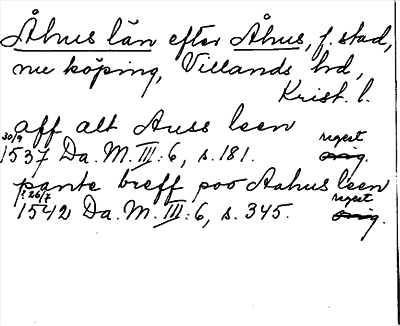 Åhus län efter Åhus, f. stad,
nu köping, Villands hd,
Krist. l.
aff alt Auss leen
30/9 1537 Da. M. III: 6, s. 181. regest orig.
pante breff poo Aahus leen
? 26/7 1542 Da. M. III: 6, s. 345. regest orig.